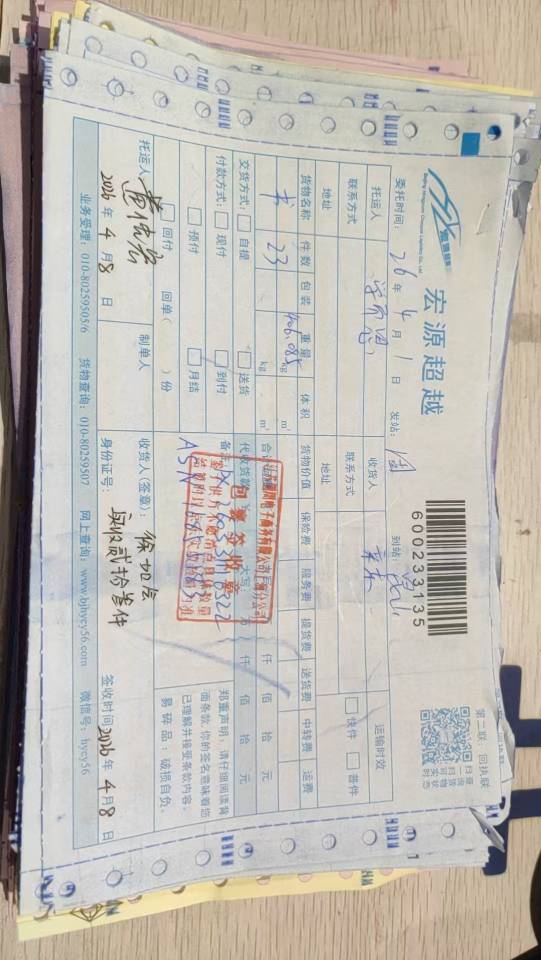 宏源超越
第二联：回执联
600233135
委托时间：26 年 4 月 1 日 发站： 到站：
托运人 收货人 京东 运输时效
联系方式 联系方式 快件 普件
地址 地址
货物名称 件数 包装 重量 体积 货物价值 保险费 服务费 提货费 送货费 中转费 运费
书 23 406.085 kg m³
kg m³
交货方式： 自提 送货
付款方式： 现付 到付
预付 月结
回付 回单（ ）份
代收货款 大写 万 仟 佰 拾 元
仟 佰 拾 元
包裹签收章
郑重声明：请仔细阅读背
面条款，你的签名意味着您
已理解并接受条款内容。
易碎品：破损自负。
托运人 制单人 收货人（签章）：
实收贰拾叁件
2026 年 4 月 8 日 身份证号： 签收时间 2026 年 4 月 8 日
业务受理：010-80259505/6 货物查询：010-80259507 网上查询：www.bjhycy56.com 微信号：hycy56